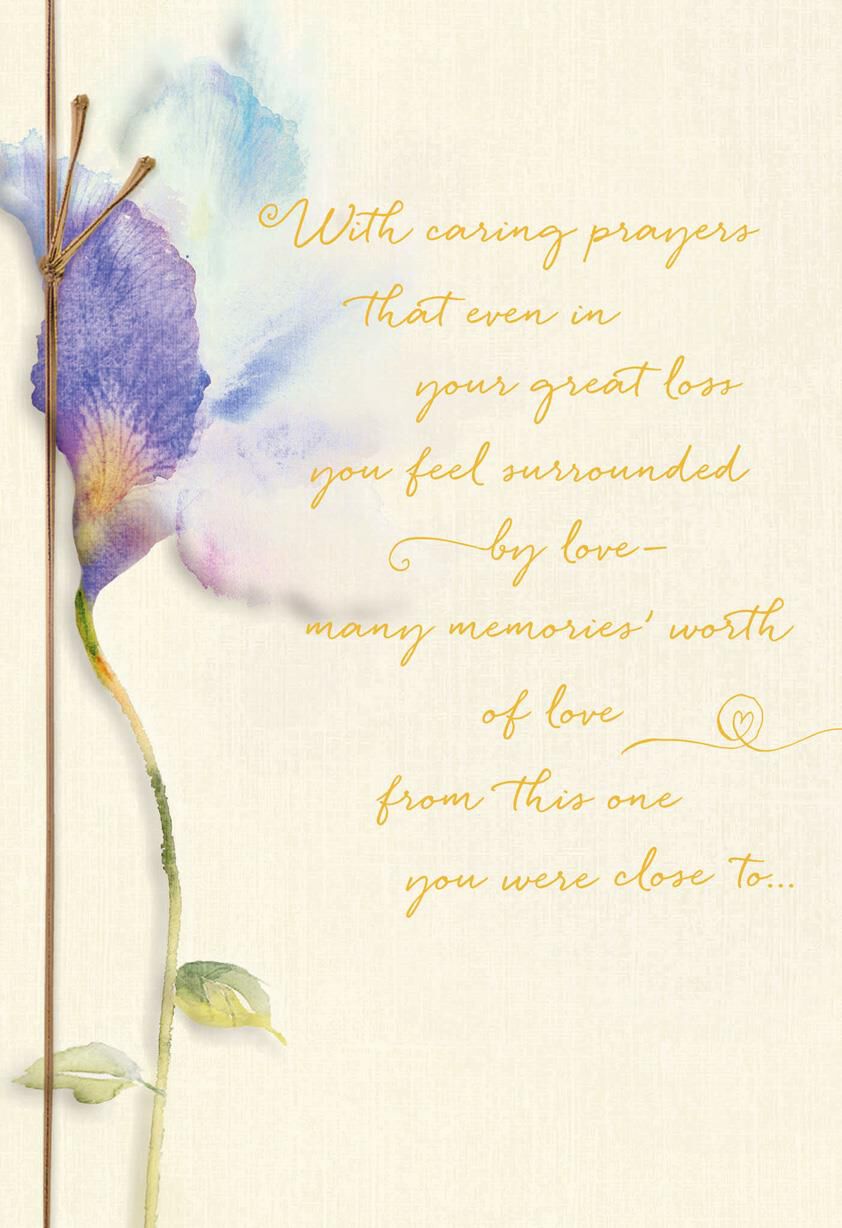 With caring prayers
that even in
your great loss
you feel surrounded
by love–
many memories' worth
of love
from this one
you were close to...